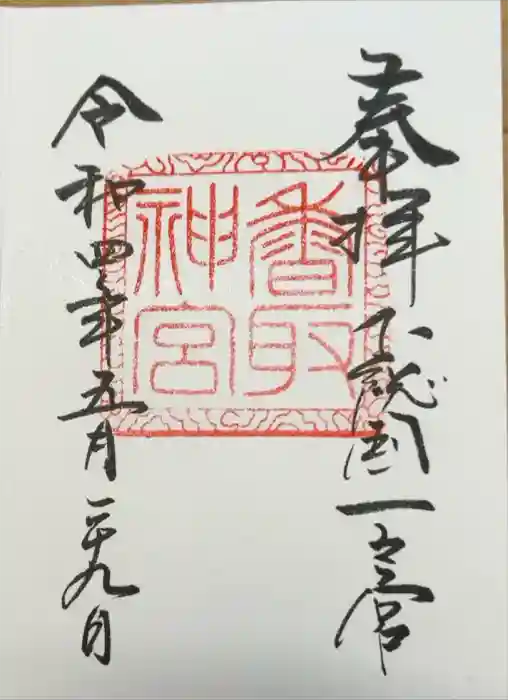 奉拝 下総国一之宮
香取
神宮
令和四年五月二十九日